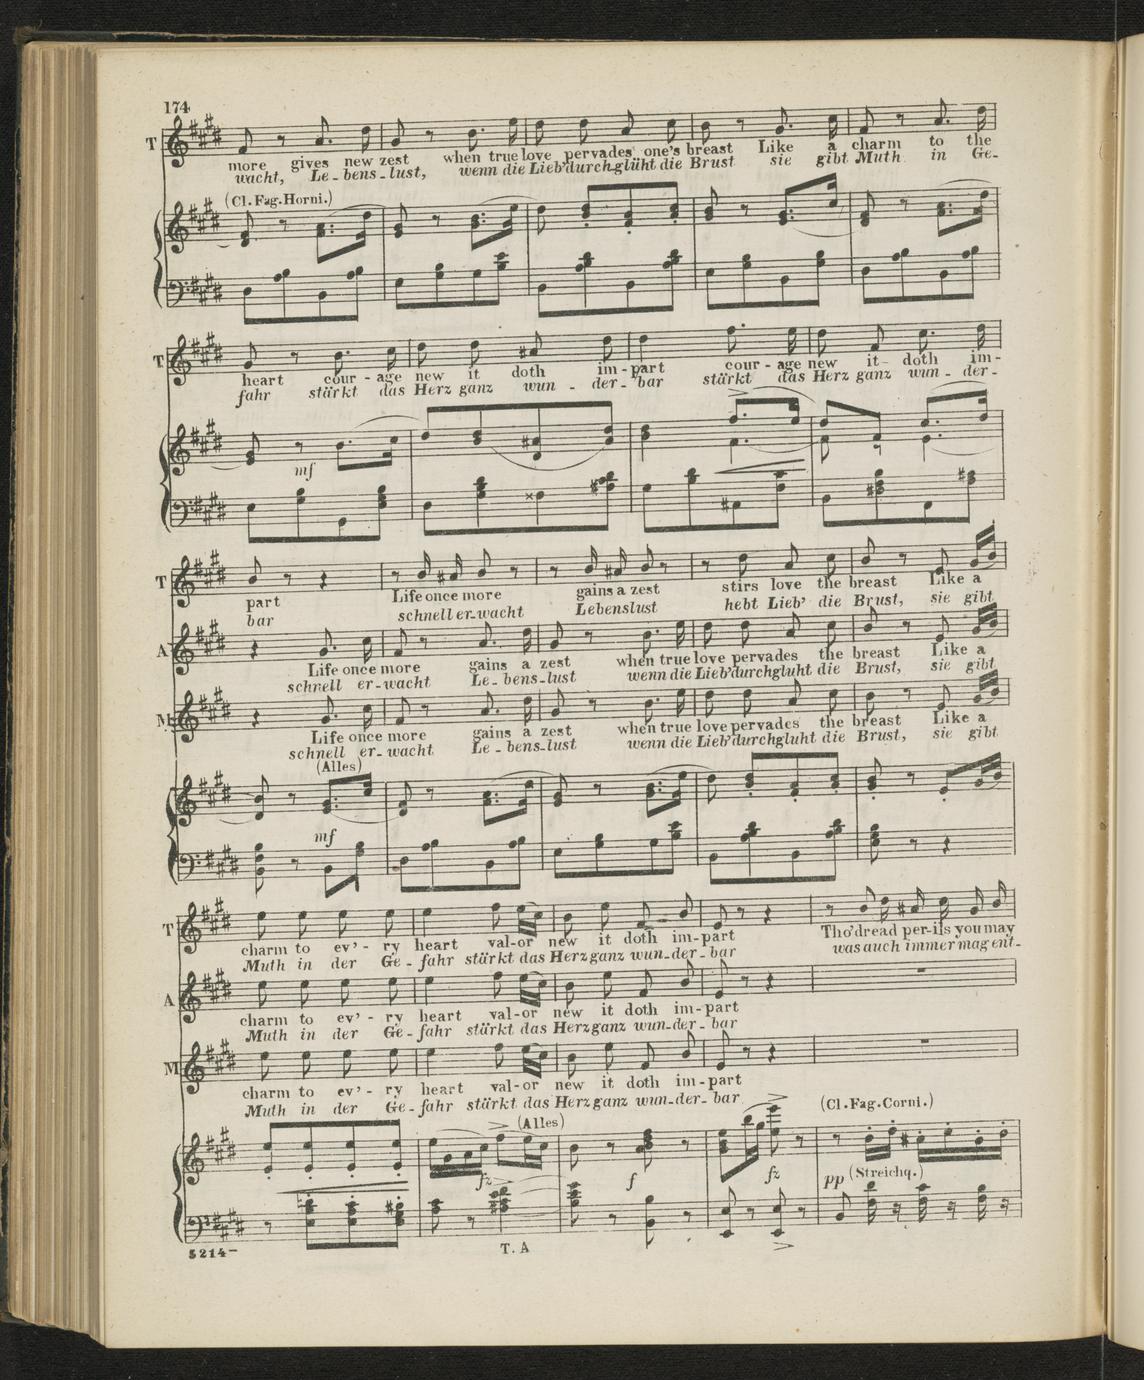 174
T
more gives new zest when true love pervades one's breast Like a charm to the
wacht, Le-bens-lust, wenn die Lieb' durch-glüht die Brust sie gibt Muth in Ge-
(Cl. Fag. Horni.)
T
heart cour-age new it doth im-part cour-age new it doth im-
fahr stärkt das Herz ganz wun-der-bar stärkt das Herz ganz wun-der-
mf
T
part Life once more gains a zest stirs love the breast Like a
bar schnell er-wacht Lebenslust hebt Lieb' die Brust, sie gibt
A
Life once more gains a zest when true love pervades the breast Like a
schnell er-wacht Le-bens-lust wenn die Lieb' durchgluht die Brust, sie gibt
M
Life once more gains a zest when true love pervades the breast Like a
schnell er-wacht Le-bens-lust wenn die Lieb' durchgluht die Brust, sie gibt
(Alles)
mf
T
charm to ev'-ry heart val-or new it doth im-part Tho' dread per-ils you may
Muth in der Ge-fahr stärkt das Herz ganz wun-der-bar was auch immer mag ent-
A
charm to ev'-ry heart val-or new it doth im-part
Muth in der Ge-fahr stärkt das Herz ganz wun-der-bar
M
charm to ev'-ry heart val-or new it doth im-part
Muth in der Ge-fahr stärkt das Herz ganz wun-der-bar
(Alles) (Cl. Fag. Corni.)
fz f fz pp (Streichq.)
5214- T. A